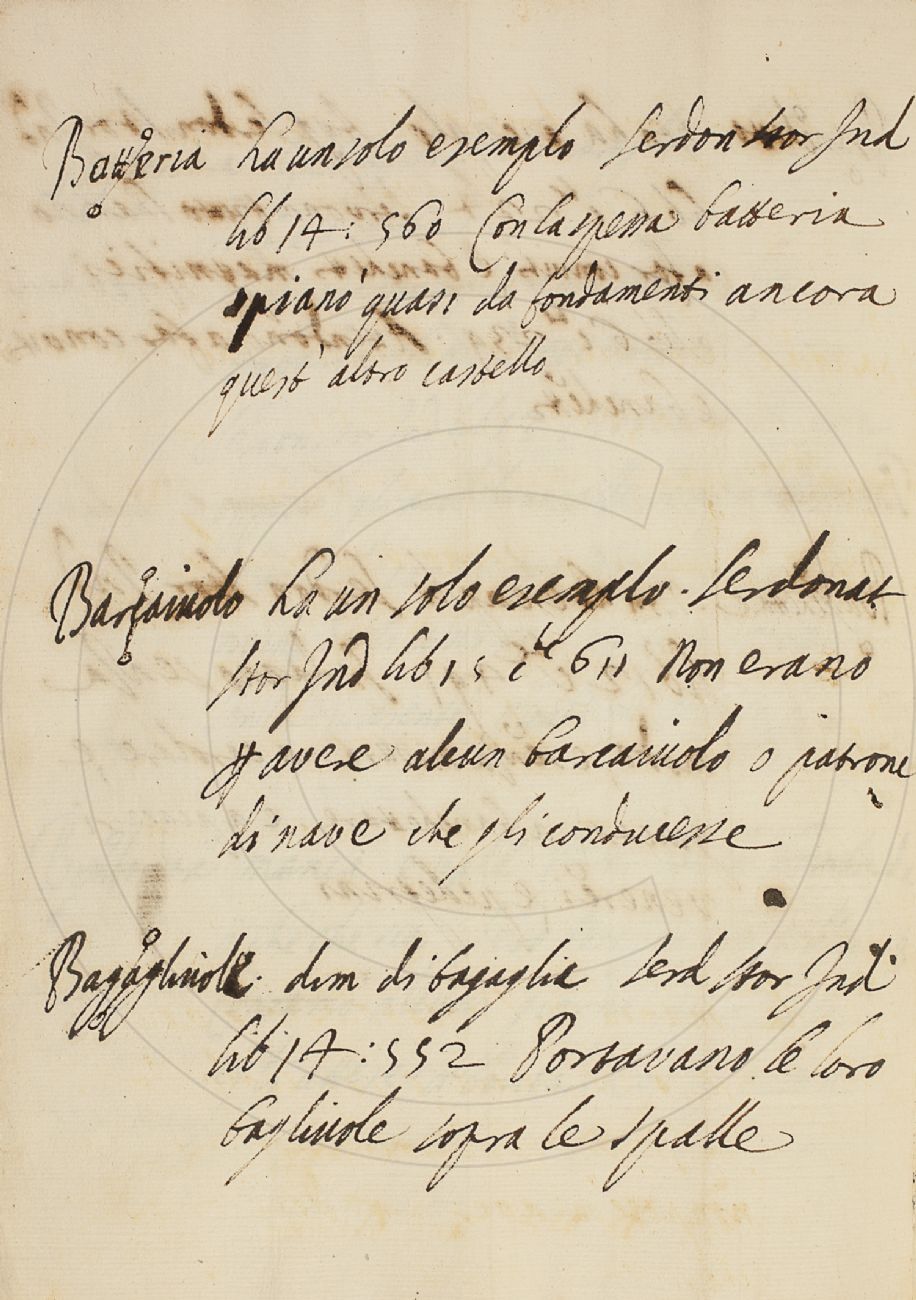 Batteria ha un solo esempio Serdon stor Ind
lib 14: 560 Con la spessa batteria
spianò quasi da fondamenti ancora
quest altro castello
Barcaiuolo ha un solo esempio. Serdonat
stor Ind lib 15 611 Non erano
avere alcun barcaiuolo o patrone
di nave che gli conducesse
Bagagliuole. dim di bagaglia Serd stor Ind
lib 14: 552 Portavano le loro
bagliuole sopra le spalle